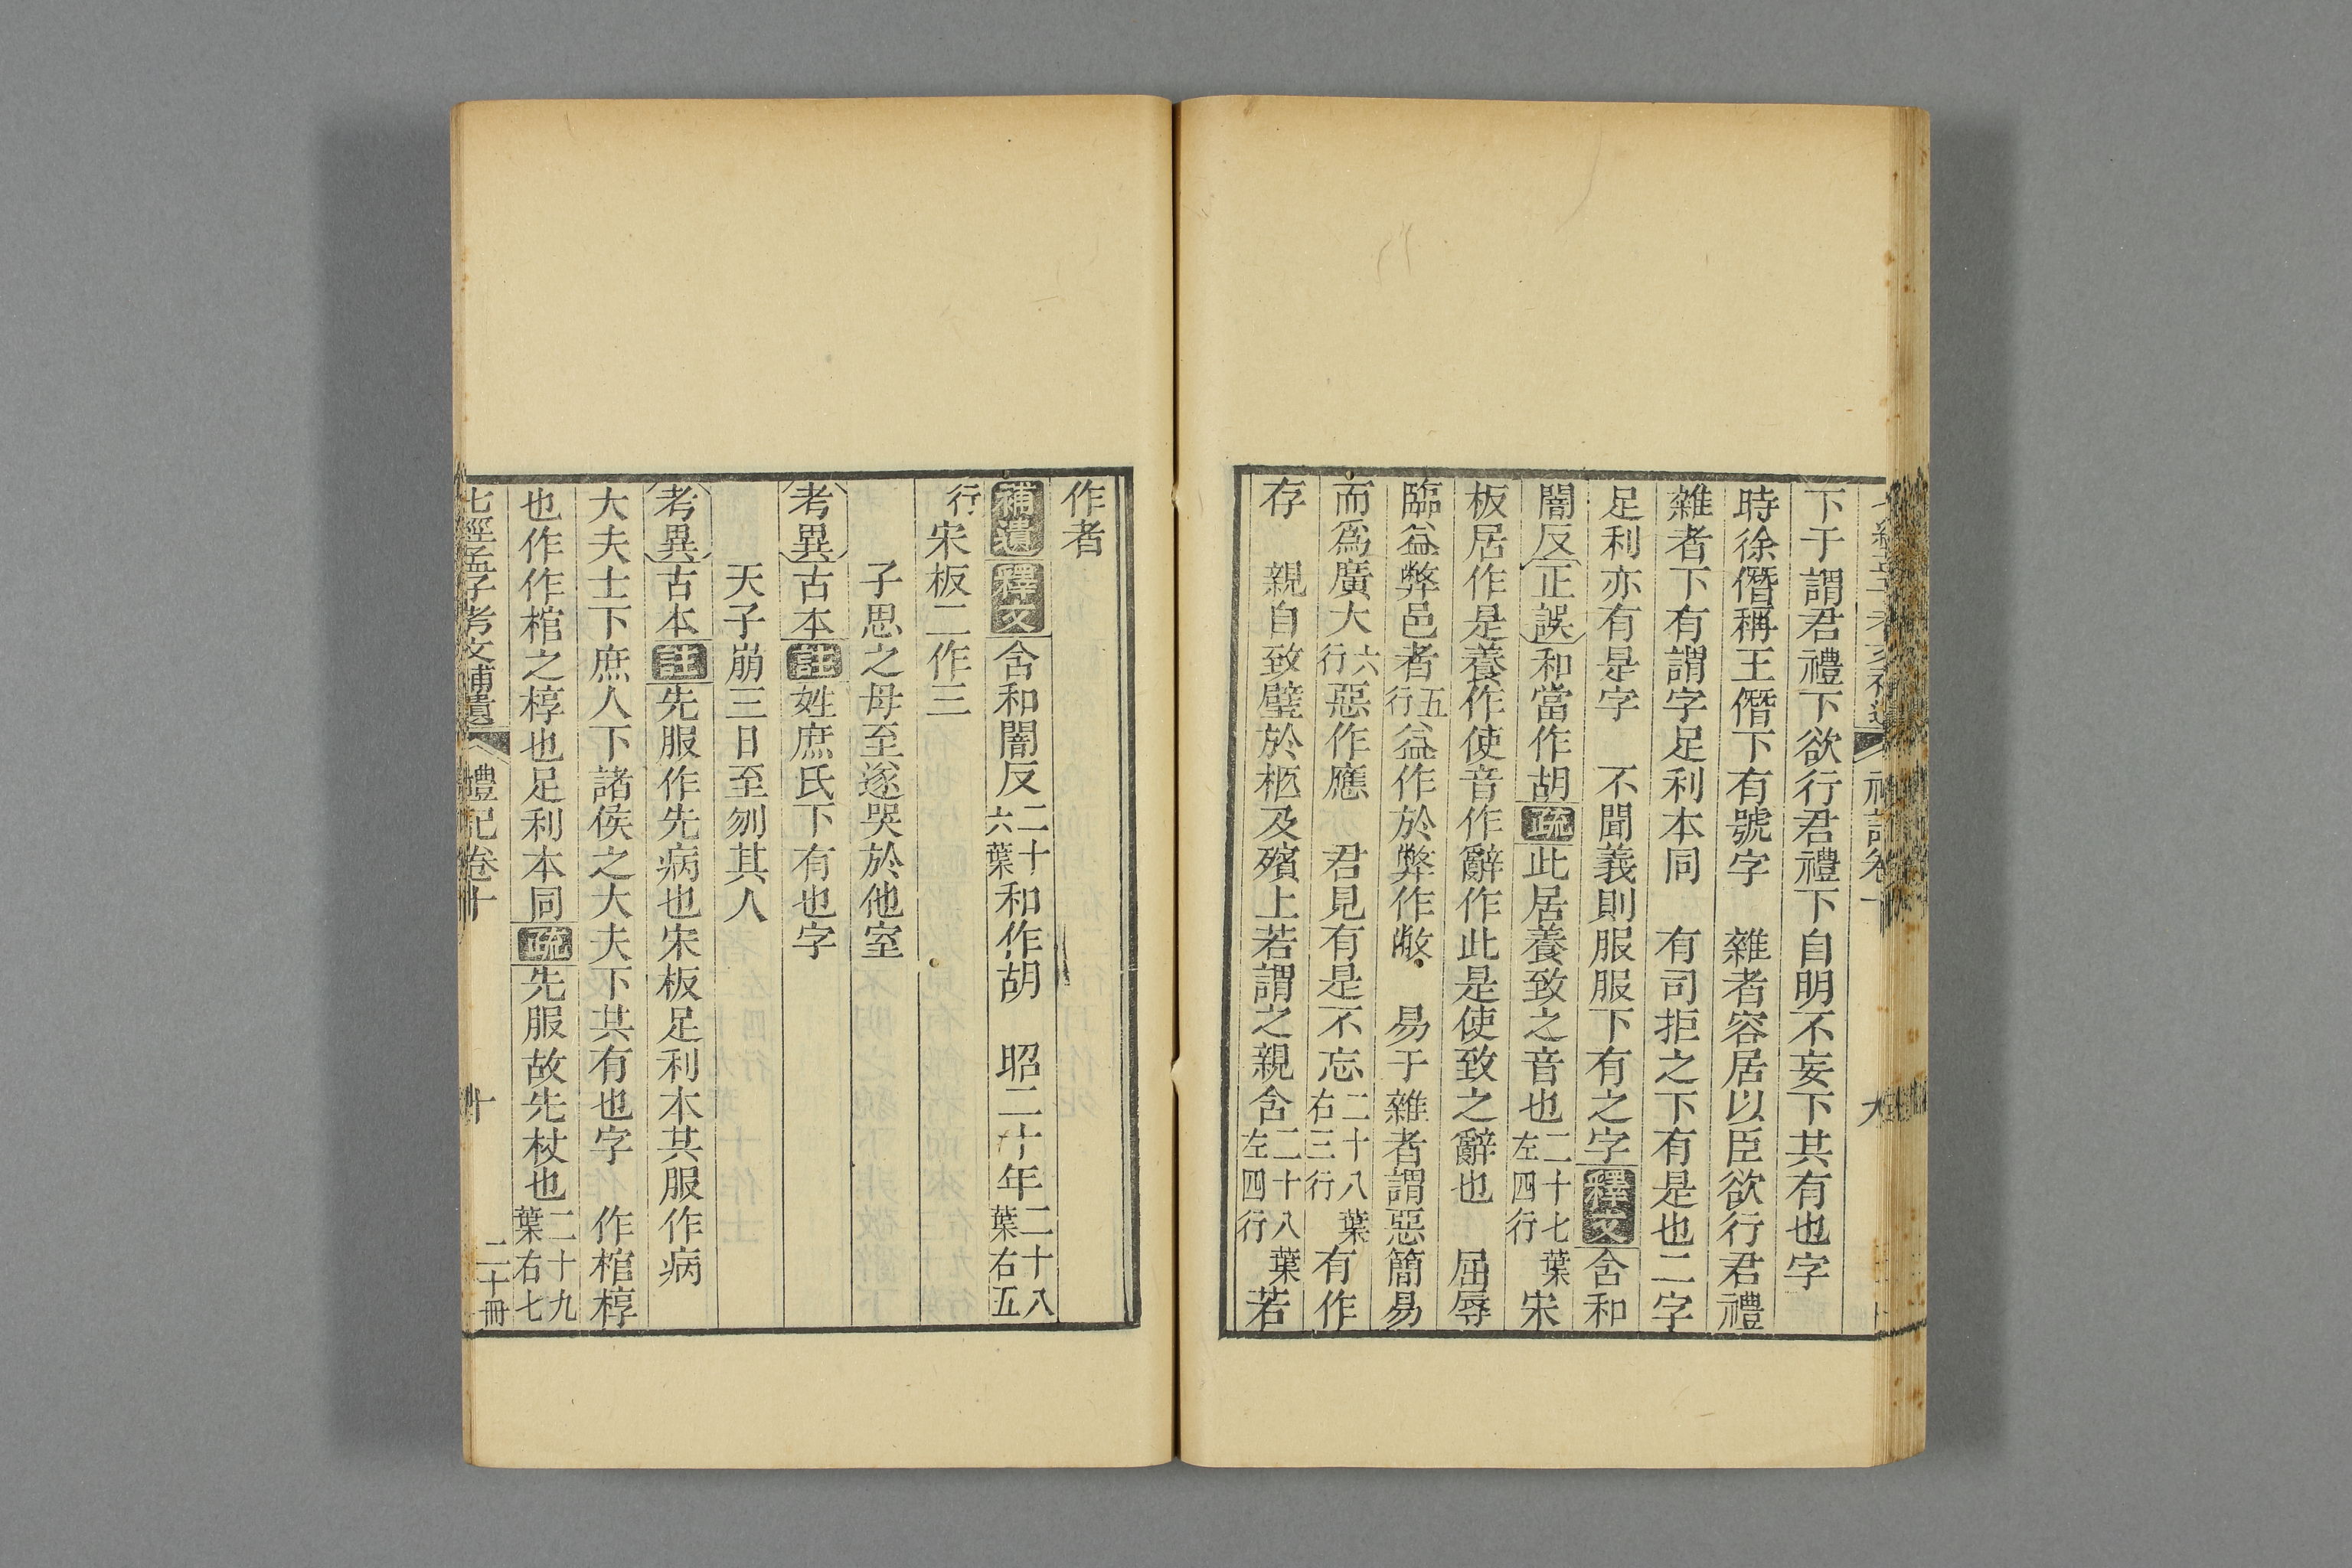 下于謂君禮下欲行君禮下自明不妄下共有也字
時徐僭稱王僭下有號字　雜者容居以臣欲行君禮
雜者下有謂字足利本同　有司拒之下有是也二字
足利亦有是字　不聞義則服服下有之字釋文含和
闇反正誤和當作胡疏此居養致之音也二十七葉左四行宋
板居作是養作使音作辭作此是使致之辭也　屈辱
臨益弊邑者五行益作於弊作敝　易于雜者謂惡簡易
而爲廣大六行惡作應　君見有是不忘二十八葉右三行有作
存　親自致璧於柩及殯上若謂之親含二十八葉左四行若
作者
補遺釋文含和闇反二十六葉和作胡　昭二十年二十八葉右五
行宋板二作三
子思之母至遂哭於他室
考異古本註姓庶氏下有也字
天子崩三日至刎其人
考異古本註先服作先病也宋板足利本其服作病
大夫士下庶人下諸侯之大夫下共有也字　作棺椁
也作作棺之椁也足利本同疏先服故先杖也二十九葉右七
七經孟子考文補遺　禮記卷十　十　二十冊